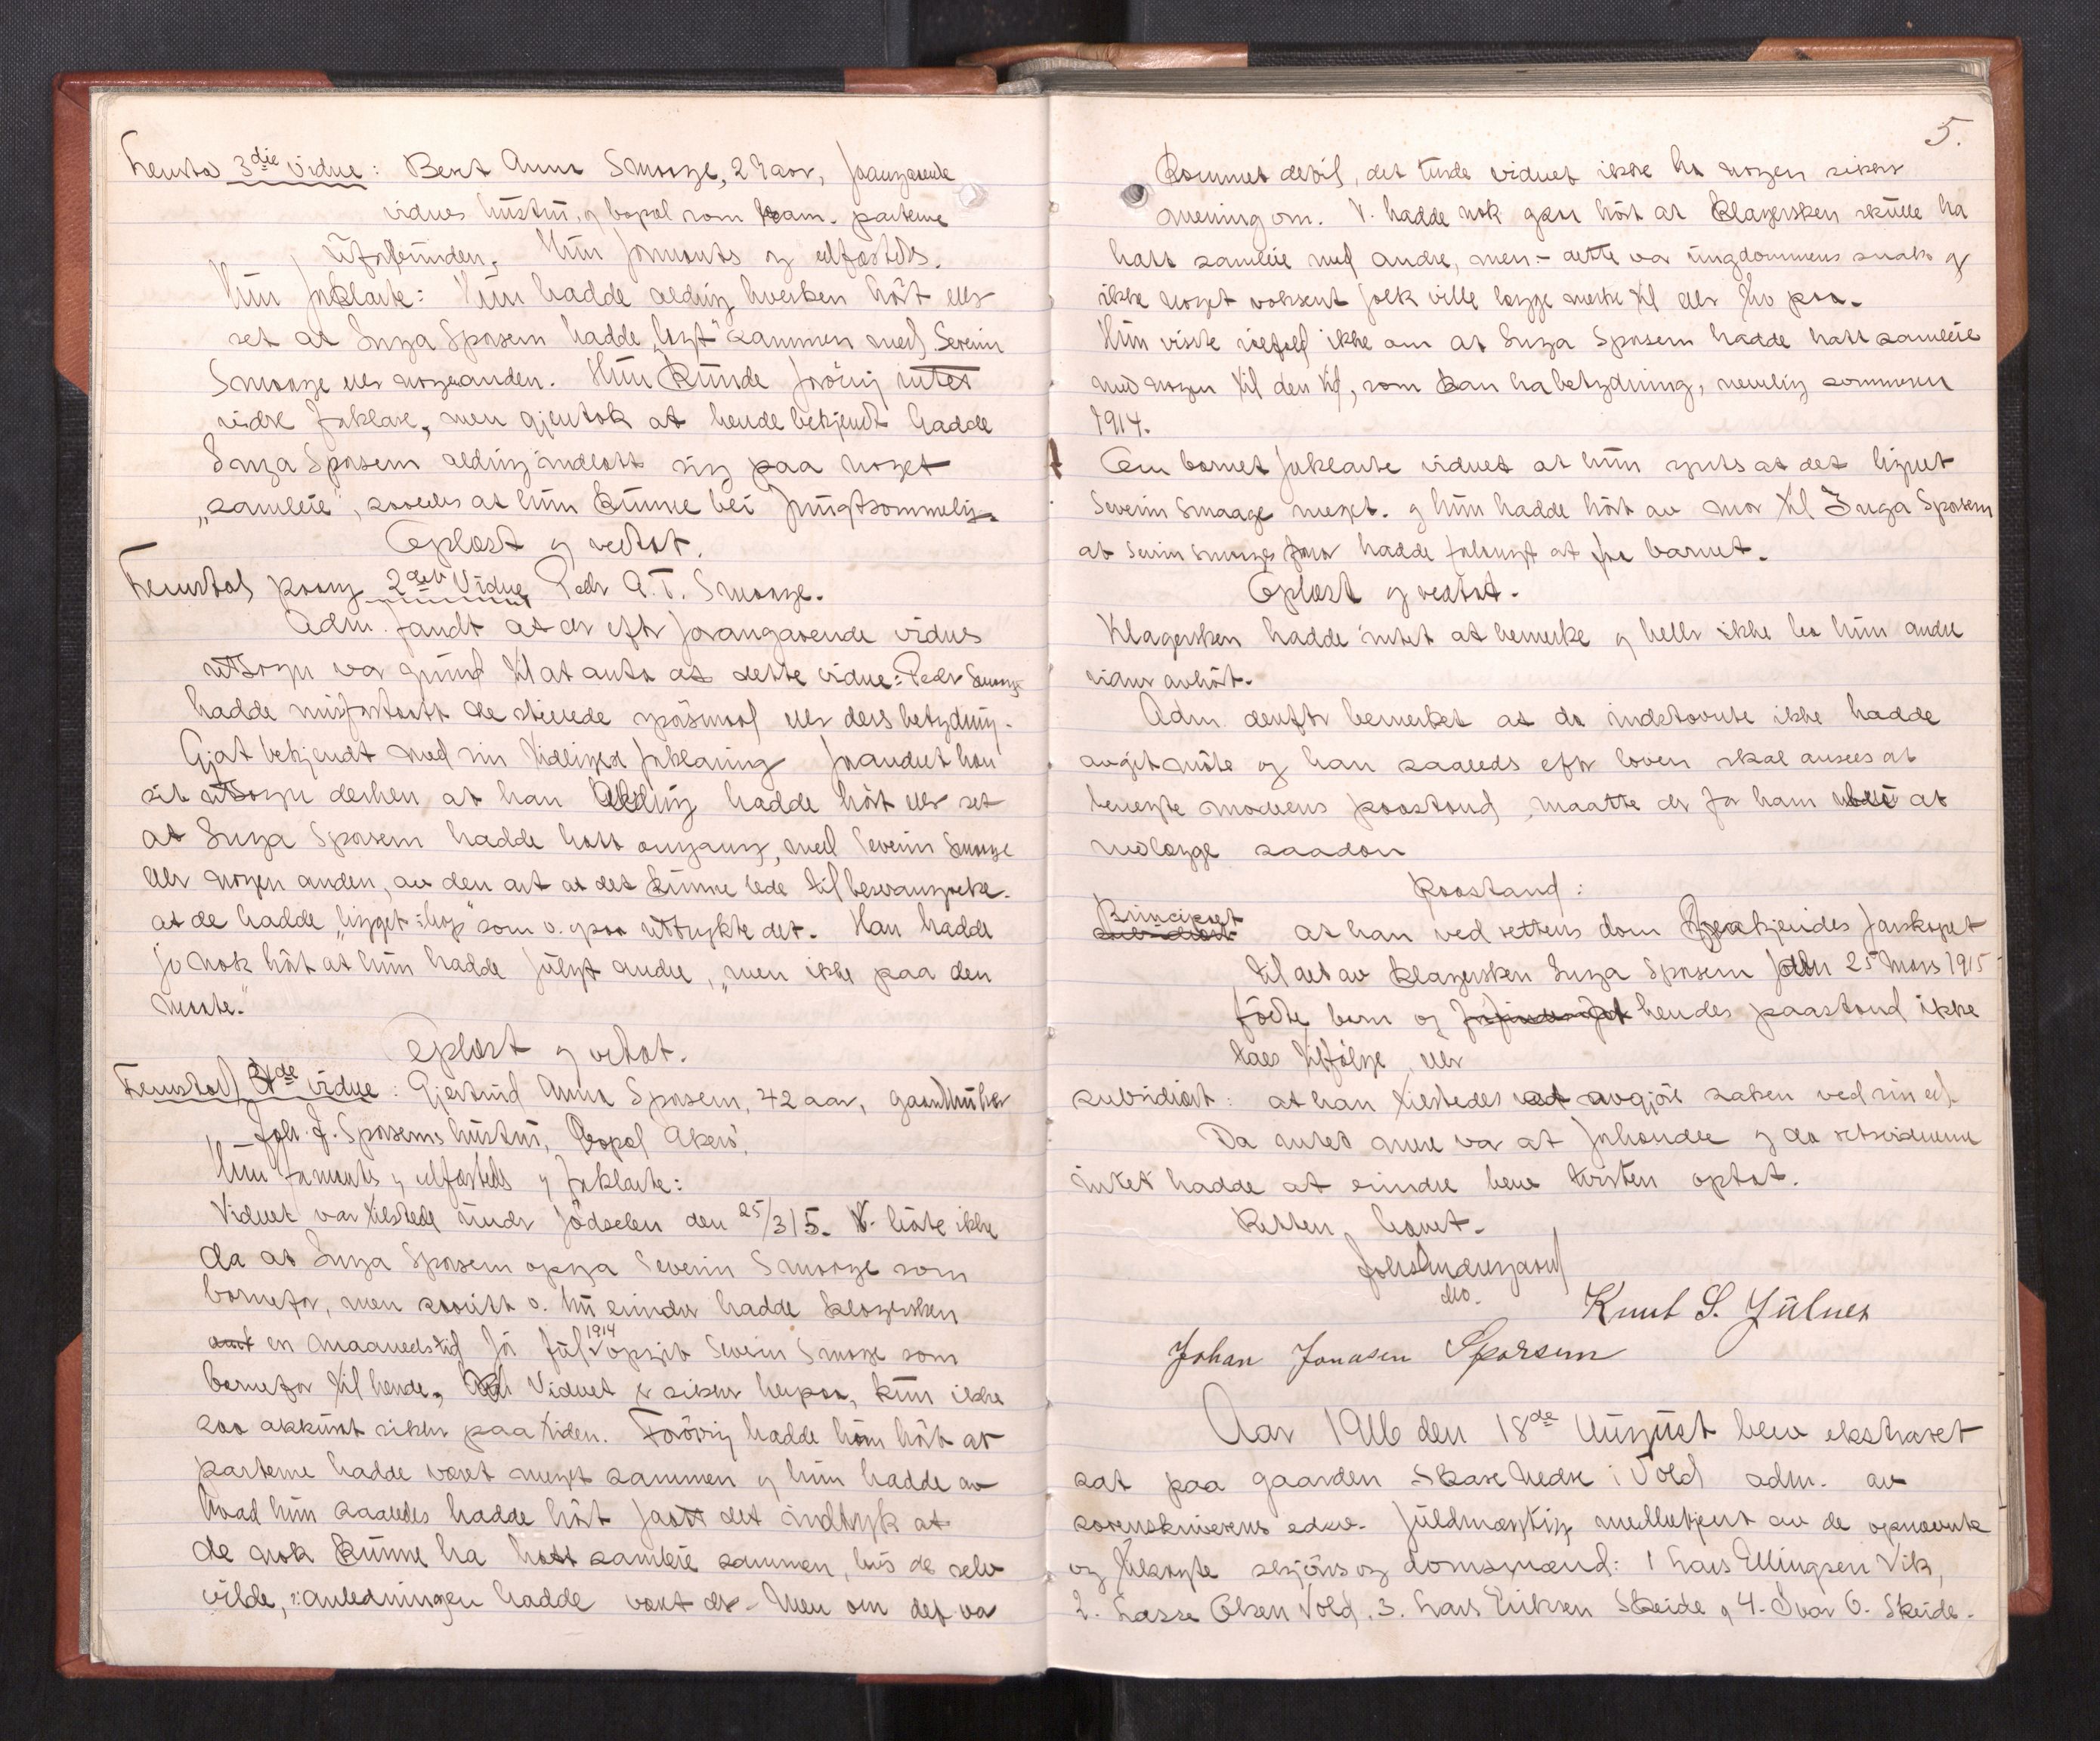 Fremstod 3die vidne: Berit Anna Smaage, 29 aar, foregaaende
vidnes hustru, og bopæl som ham. parterne
uforbunden. Hun formantes og edfæstedes.
Hun forklarte: Hun hadde aldrig hverken hørt eller
set at Inga Sporsem hadde "ligt" sammen med Severin
Smaage eller nogen anden. Hun kunde forøvrig intet
videre forklare, men gjentok at hende bekjendt hadde
Inga Sporsem aldrig indlatt sig paa noget
"samleie", saaledes at hun kunne bli frugtsommelig.
Oplæst og vedtat.
Fremstod paany 2det Vidne Peder A.T. Smaage.
Adm. fandt at der efter forangaaende vidnes
utsagn var grund til at anta at dette vidne: Peder Smaage
hadde misforstaatt de stillede spørsmaal eller ders betydning.
Gjort bekjendt med sin tidligere forklaring forandret han
sit utsagn derhen at han aldrig hadde hørt eller set
at Inga Sporsem hadde hatt omgang, med Severin Smaage
eller nogen anden, av den art at det kunne lede til besvangrelse.
at de hadde "ligget ihop" som v. ogsaa uttrykte det. Han hadde
jo nok hørt at hun hadde fulgt andre, "men ikke paa den
maate."
Oplæst og vedtat.
Fremstod 4de vidne: Gjertrud Anna Sporsem, 42 aar, gaardbruker
Joh. J. Sporsems hustru, bopæl Akerø.
Hun formantes og edfæstedes og forklarte:
Vidnet var tilstede under fødselen den 25/3 15. V. hørte ikke
da at Inga Sporsem opga Severin Smaage som
barnefar, men saavitt v. nu erindrer hadde klagersken
en maanedstid før jul 1914 opgit Severin Smaage som
barnefar til hende. Vidnet er sikker herpaa, kun ikke
saa akkurat sikker paa tiden. Forøvrig hadde hun hørt at
parterne hadde været meget sammen og hun hadde av
hvad hun saaledes hadde hørt faatt det indtryk at
de nok kunne ha hatt samleie sammen, hvis de selv
vilde, : anledningen hadde været der - Men om det var
5.
kommet dertil, det turde vidnet ikke ha nogen sikker
mening om. V. hadde nok ogsaa hørt at klagersken skulle ha
hatt samleie med andre, men - dette var ungdommens snak og
ikke noget voksent folk ville lægge merke til eller tro paa.
Hun visste ialfald ikke om at Inga Sporsem hadde hatt samleie
med nogen til den tid, som kan ha betydning, nemlig sommeren
1914.
Om barnet forklarte vidnet at hun syntes at det lignet
Severin Smaage meget. og hun hadde hørt av mor til Inga Sporsem
at Severin Smaages far hadde forlangt at faa barnet.
Oplæst og vedtat.
Klagersken hadde intet at bemerke og heller ikke ba hun andre
vidner avhørt.
Adm. derefter bemerket at da indstevnte ikke hadde
avgit møte og han saaledes efter loven skal ansees at
benegte moderens paastand, maatte der for ham bli at
nedlægge saadan
Paastand:
Principalt at han ved rettens dom frakjendes farskapet
til det av klagersken Inga Sporsem den 25 Mars 1915
fødte barn og hendes paastand ikke
taes tilfølge, eller
subsidiært: at han tilstedes at avgjøre saken ved sin ed.
Da intet mere var at forhandle og da retsvidnerne
intet hadde at erindre blev tvisten optat.
Retten hævet.
Johs Andersgaard
Knut S. Julnes
Johan Jonasen Sporsem
Aar 1916 den 18de August blev ekstraret
sat paa gaarden Skare nedre i Vold adm. av
sorenskriverens edsv. fuldmægtig meddbetjent av de opnævnte
og tilkaldte skjøns og domsmænd: 1 Lars Ellingsen Vik,
2. Lasse Olsen Vold, 3. Lars Eriksen Skeide, 4. Ivar O. Skeide.